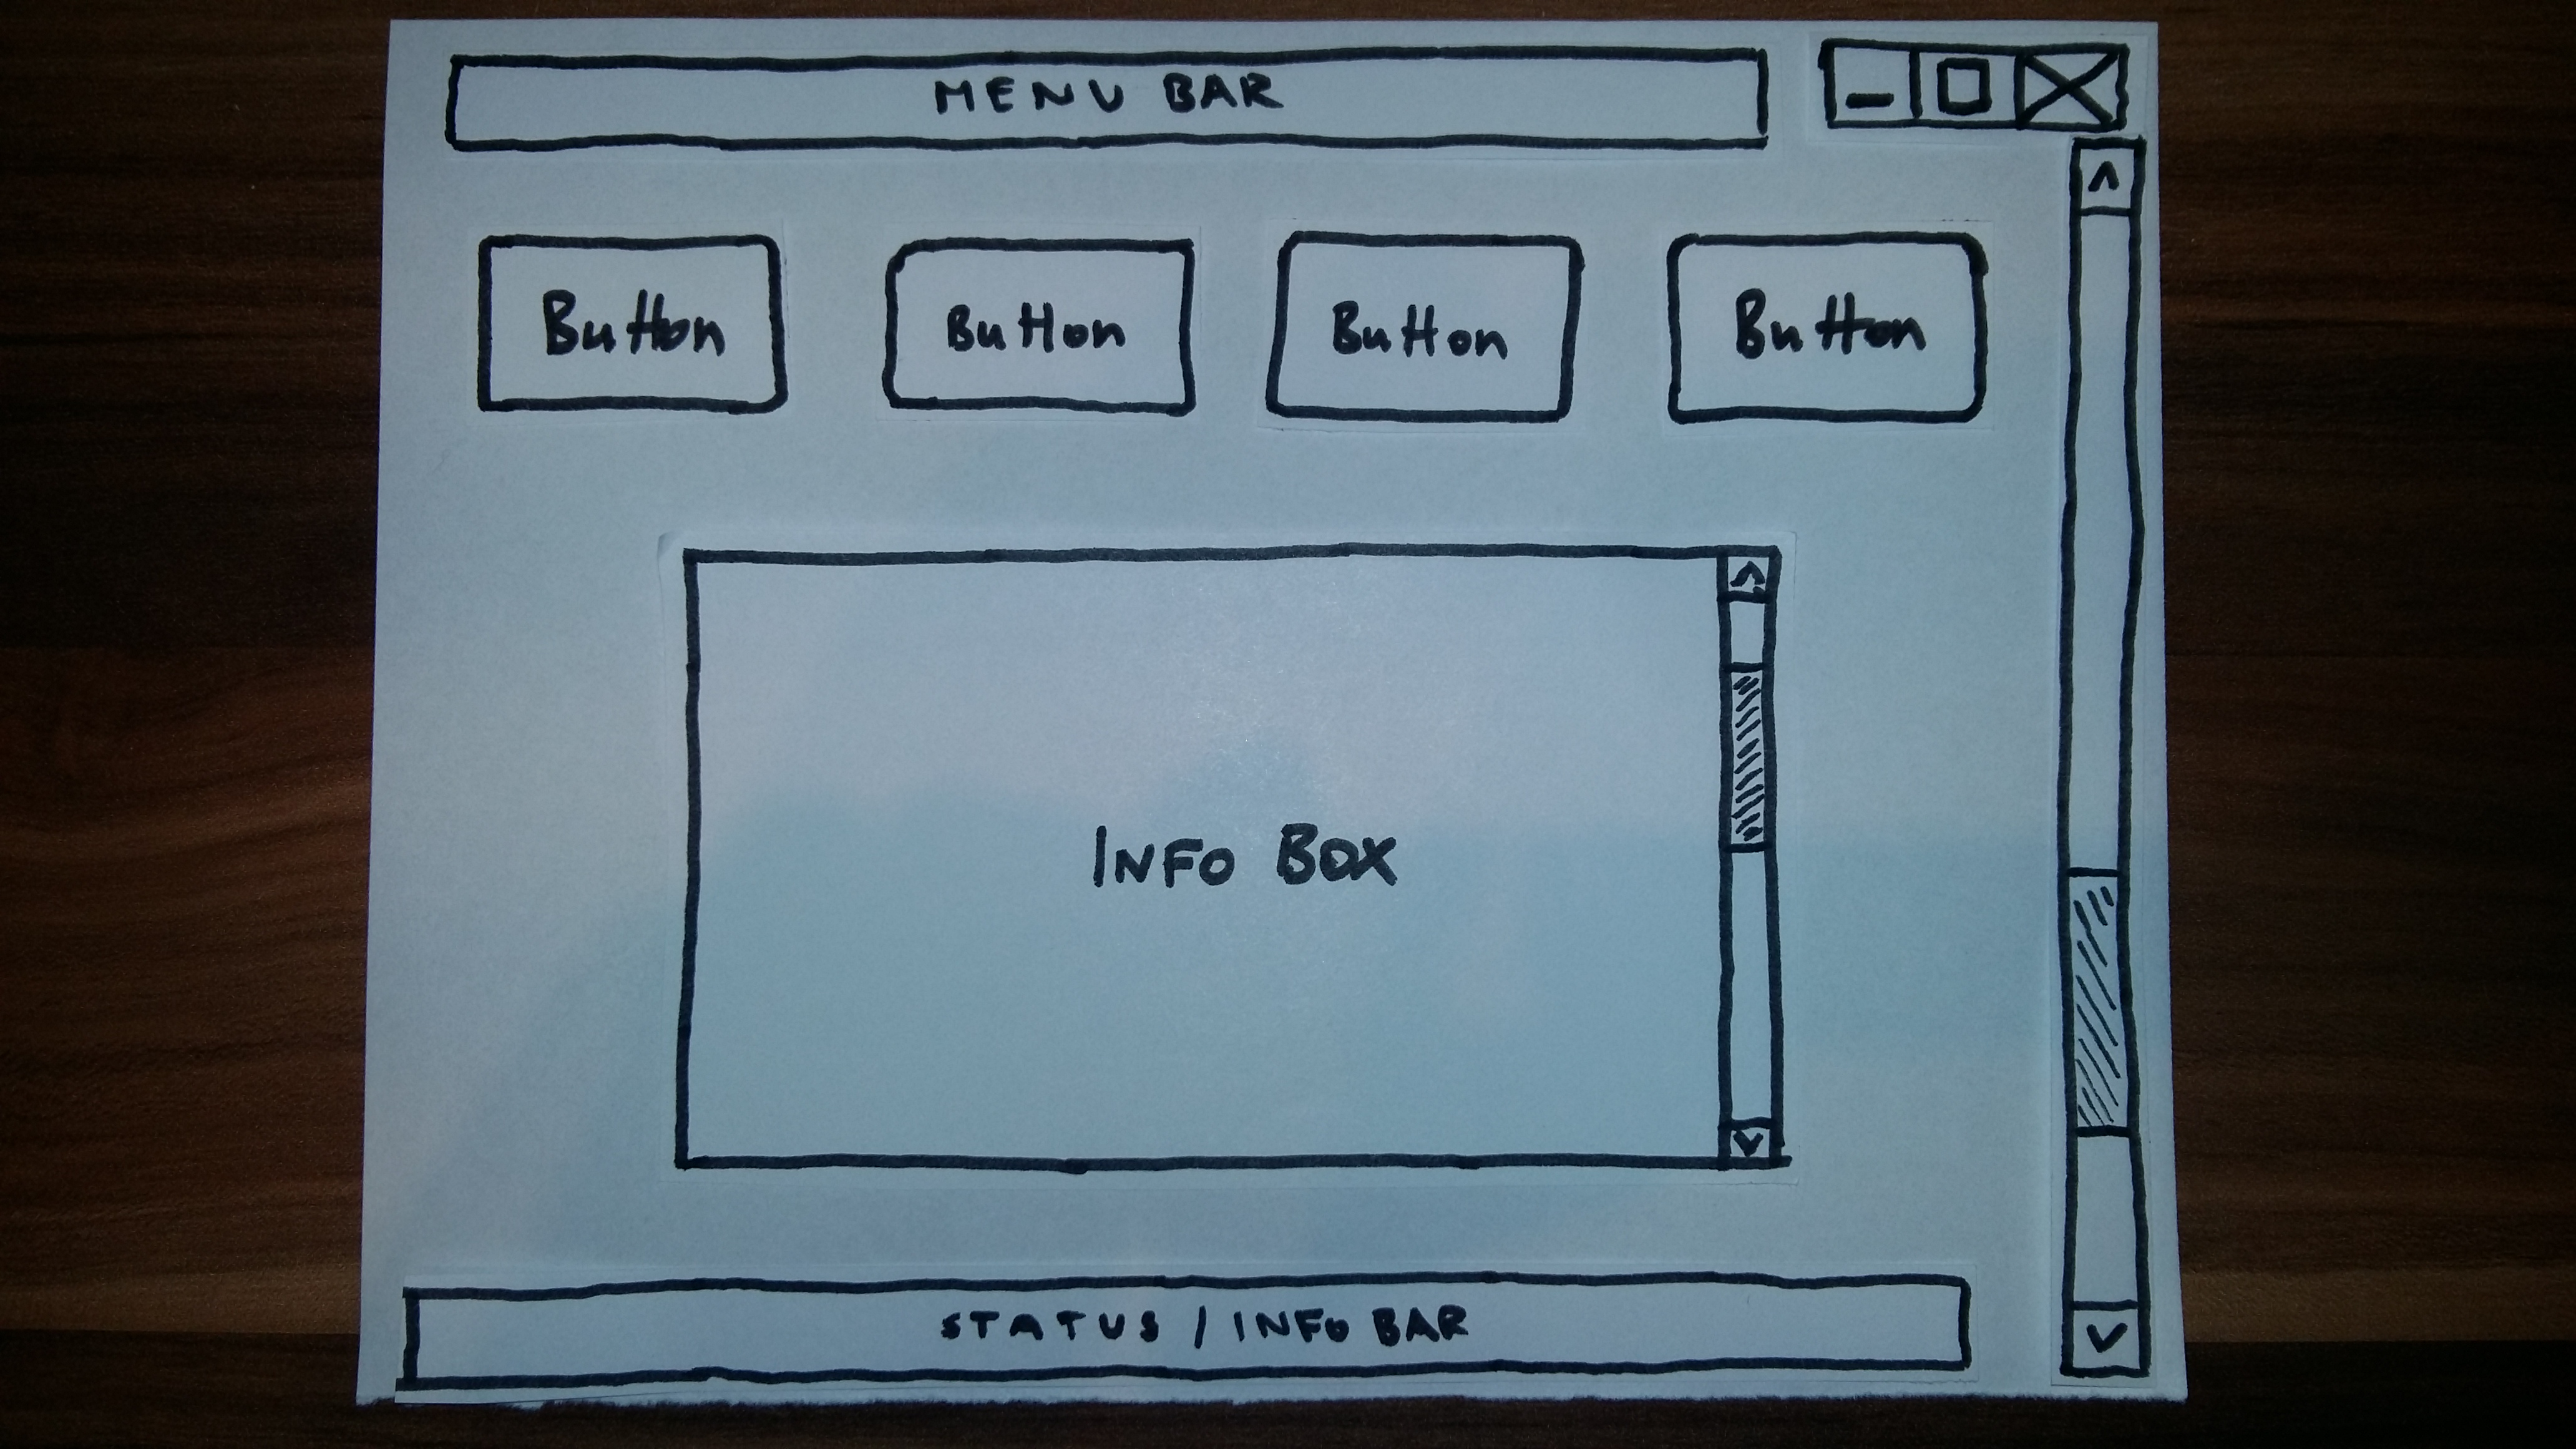 MENU BAR
Button Button Button Button
INFO BOX
STATUS / INFO BAR